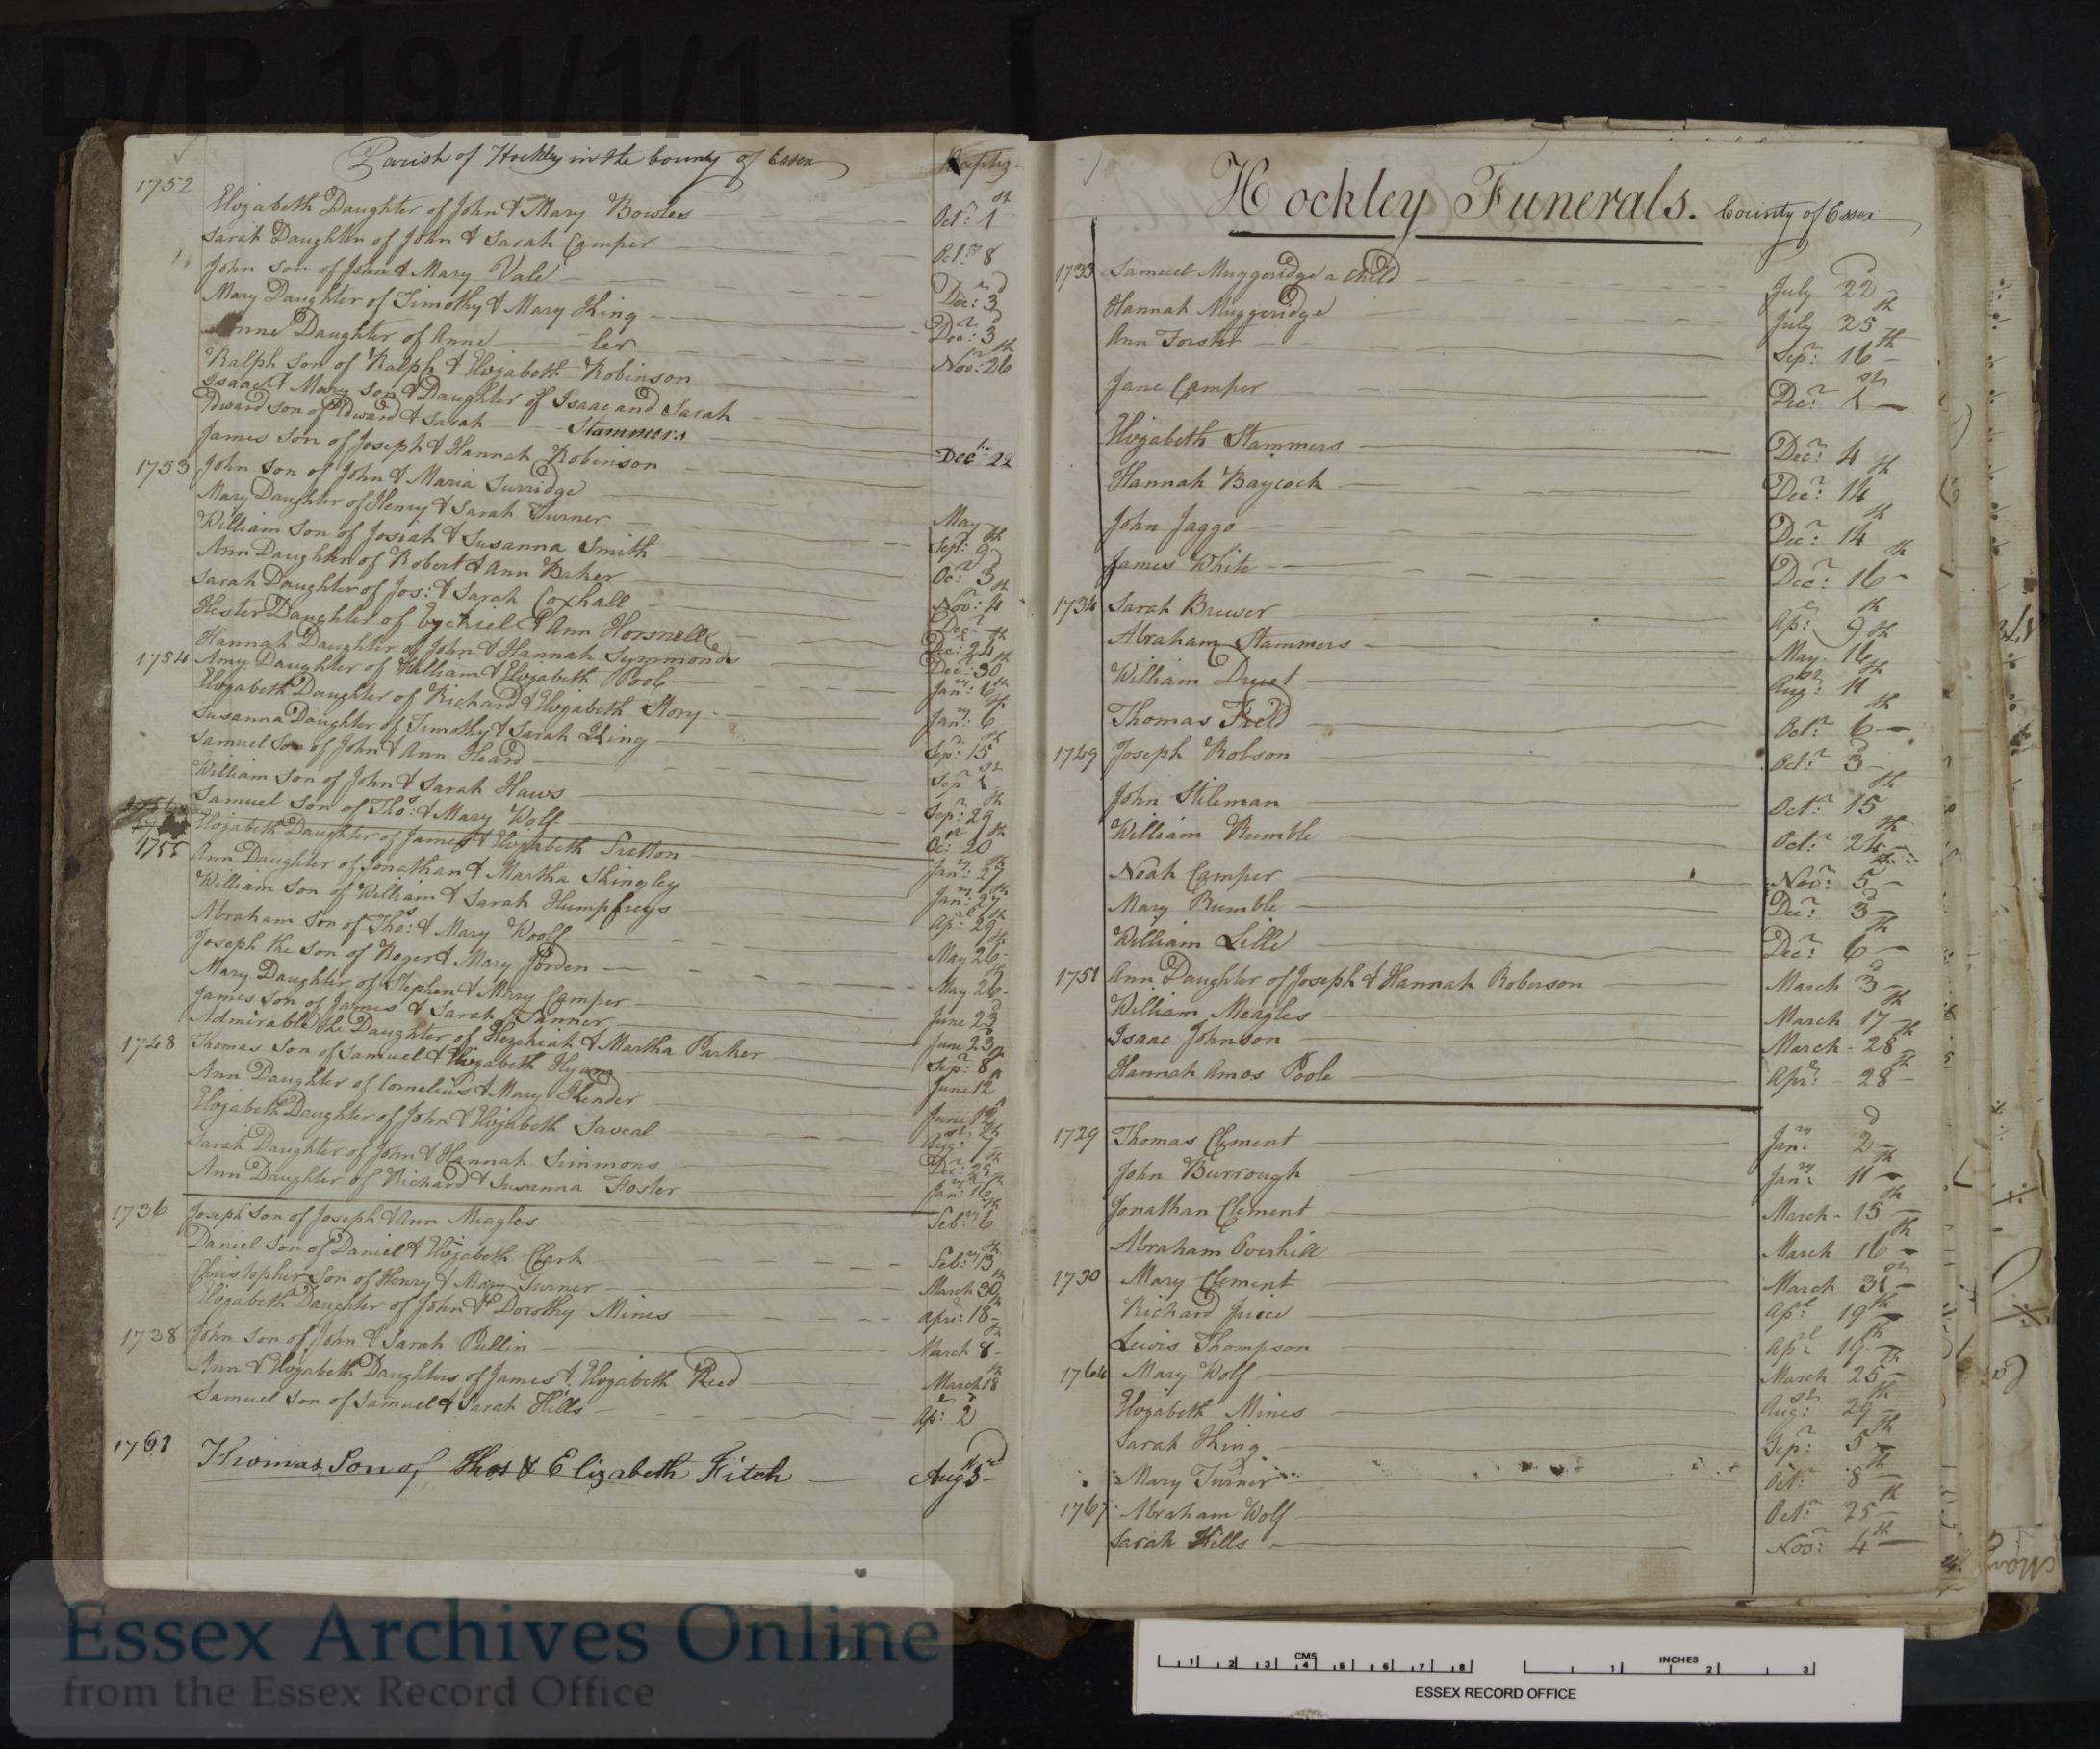 D/P 191/1/1
Parish of Hockley in the County of Essex Baptiz
1752
Elizabeth Daughter of John & Mary Bowles Octr: 1st
Sarah Daughter of John & Sarah Camper Octr: 8
John Son of John & Mary Vale Decr: 3d
Mary Daughter of Timothy & Mary King Decr: 3d
Anne Daughter of Anne ler Novr: 26th
Ralph Son of Ralph & Elizabeth Robinson
Isaac & Mary Son & Daughter of Isaac and Sarah
Edward Son of Edward & Sarah Stammers
James Son of Joseph & Hannah Robinson Decbr 22
1753 John Son of John & Maria Surridge
Mary Daughter of Henry & Sarah Turner May
William Son of Josiah & Susanna Smith Sept: 9th
Ann Daughter of Robert & Ann Baker Oc: 3d
Sarah Daughter of Jos: & Sarah Coxhall Novr: 4th
Hester Daughter of Ezekiel & Ann Horsnell Decr
Hannah Daughter of John & Hannah Symmonds Decr: 24th
1754 Amy Daughter of William & Elizabeth Poole Decr: 30th
Elizabeth Daughter of Richard & Elizabeth Story Jany: 6th
Susanna Daughter of Timothy & Sarah King Jany: 6th
Samuel Son of John & Ann Heard Sepr: 15th
William Son of John & Sarah Haws Sepr 1st
Samuel Son of Thos: & Mary Wolf Sepr: 29th
Elizabeth Daughter of James & Elizabeth Sutton Ocr: 20th
1755 Ann Daughter of Jonathan & Martha Shingley Jany: 27th
William Son of William & Sarah Humpfreys Jany: 27th
Abraham Son of Thos: & Mary Woolf Apl: 29th
Joseph the Son of Roger & Mary Jorden May 26th
Mary Daughter of Stephen & Mary Camper May 26th
James Son of James & Sarah Tanner June 23d
Admirable the Daughter of Hezekiah & Martha Parker June 23d
1748 Thomas Son of Samuel & Elizabeth Hyam Sepr: 8th
Ann Daughter of Cornelius & Mary Shender June 12th
Elizabeth Daughter of John & Elizabeth Saveal June 12th
Sarah Daughter of John & Hannah Simmons Augst 7th
Ann Daughter of Richard & Susanna Foster Decr: 25th
Jany: 16th
1736 Joseph Son of Joseph & Ann Meagles Feby 6th
Daniel Son of Daniel & Elizabeth Clark Feby 13th
Christopher Son of Henry & Mary Turner March 30th
Elizabeth Daughter of John & Dorothy Mines Apri: 18th
1738 John Son of John & Sarah Pullin March 8th
Ann & Elizabeth Daughters of James & Elizabeth Reed March 18th
Samuel Son of Samuel & Sarah Hills Apl: 2d
1761 Thomas Son of Thos & Elizabeth Fitch Augst 3rd
Hockley Funerals. County of Essex
1733 Samuel Muggeridge a Child July 22d
Hannah Muggeridge July 25th
Ann Forster Sepr: 16th
Jane Camper Decr: 1st
Elizabeth Stammers Decr: 4
Hannah Baycock Decr: 14th
John Jaggo Decr: 14th
James White Decr: 16th
1734 Sarah Brewer Apl: 9th
Abraham Stammers May 16th
William Druet Augst: 11th
Thomas Field Octr: 6th
1749 Joseph Robson Octr: 3d
John Stileman Octr: 15th
William Rumble Octr: 24th
Noah Camper Novr: 5th
Mary Rumble Decr: 3d
William Lille Decr: 6th
1751 Ann Daughter of Joseph & Hannah Roberson March 3d
William Meagles March 17th
Isaac Johnson March 28th
Hannah Amos Poole Aprl: 28th
1729 Thomas Clement Jany: 2d
John Burrough Jany: 11th
Jonathan Clement March 15th
Abraham Overhill March 16th
1730 Mary Clement March 31st
Richard Juice Apl: 19th
Lewis Thompson Apl: 19th
1764 Mary Wolf March 25th
Elizabeth Mines Augst: 29th
Sarah King Sepr: 5th
Mary Turner Octr: 8th
1767 Abraham Wolf Octr: 25th
Sarah Hills Novr: 4th
Essex Archives Online
from the Essex Record Office
CMS INCHES
1 2 3 4 5 6 7 8 1 2 3
ESSEX RECORD OFFICE